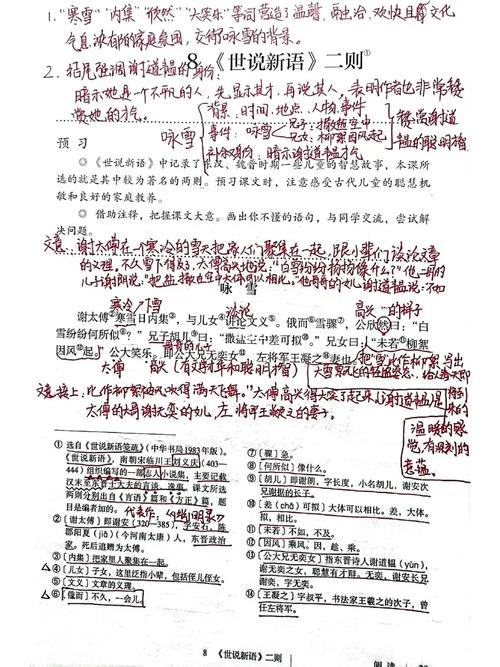 1."寒雪""内集""欣然""大笑乐"等词营造了温馨、融洽、欢快且有文化
气息浓郁的家庭氛围,交待了咏雪的背景。
8 《世说新语》二则①
2. 结尾强调谢道韫的身份:
暗示她是一个不平凡的人,先显示其才,再说其人,表明作者也非常赞
赏她的才气。
背景:时间、地点、人物、事件
咏雪
事件:咏雪
兄子:撒盐空中
兄女:柳絮因风起
补充身份:暗示谢道韫才气
赞赏谢道
韫的聪明才
预 习
◎《世说新语》中记录了东汉、魏晋时期一些儿童的智慧故事,本课所
选的就是其中较为著名的两则。预习课文时,注意感受古代儿童的聪慧机
敏和良好的家庭教养。
◎ 借助注释,把握课文大意。画出你不懂的语句,与同学交流,尝试解
决问题。
文意:谢太傅在一个寒冷的雪天把家人们聚集在一起,跟小辈们谈论文章
的义理,不久雪下得急了,太傅高兴地说:"白雪纷纷扬扬像什么?"他哥哥的
儿子谢朗说:"把盐撒在空中大体可以相比。"他哥哥的女儿谢道韫说:不如
咏 雪
寒冷 下雪
谈论
高兴 的样子
谢太傅②寒雪日内集③,与儿女④讲论文义⑤。俄而⑥雪骤⑦,公欣然曰:"白
雪纷纷何所似⑧?"兄子胡儿⑨曰:"撒盐空中差可拟⑩。"兄女曰:"未若⑪柳絮
因风⑫起。"公大笑乐。即公大兄无奕女⑬,左将军王凝之⑭妻也。
太傅
高兴(有深度和聪明才智)
文意接上:比作柳絮随风吹得满天飞舞。"太傅高兴得大笑了起来。谢道韫是
太傅的大哥谢无奕的女儿,左将军王凝之的妻子。
温暖的感
觉,有深刻的
意蕴
① 选自《世说新语笺疏》(中华书局1983年版)。
《世说新语》,南朝宋临川王刘义庆(403—
444)组织编写的一部志人小说集,主要记载
汉末至东晋士大夫的言谈、逸事。课文所选
两则分别出自《言语》篇和《方正》篇,题
目是编者加的。
代表作:《幽明录》
②〔谢太傅〕即谢安(320—385),字安石,陈
郡阳夏(jiǎ)(今河南太康)人,东晋政治
家。死后追赠为太傅。
③〔内集〕把家里人聚集在一起。
④〔儿女〕子女,这里泛指小辈,包括侄儿侄女。
⑤〔文义〕文章的义理。
⑥〔俄而〕不久,一会儿。
⑦〔骤〕急。
⑧〔何所似〕像什么。
⑨〔胡儿〕即谢朗,字长度,小名胡儿,谢安次
兄谢据的长子。
⑩〔差(chā)可拟〕大体可以相比。差,大体。
拟,相比。
⑪〔未若〕不如,不及。
⑫〔因风〕乘风。因,趁、乘。
⑬〔公大兄无奕女〕指东晋诗人谢道韫(yùn),
谢无奕之女,聪慧有才辩。无奕,谢安长兄
谢奕,字无奕。
⑭〔王凝之〕字叔平,书法家王羲之的次子,曾
任江州刺史、左将军等。
8 《世说新语》二则
阅 读